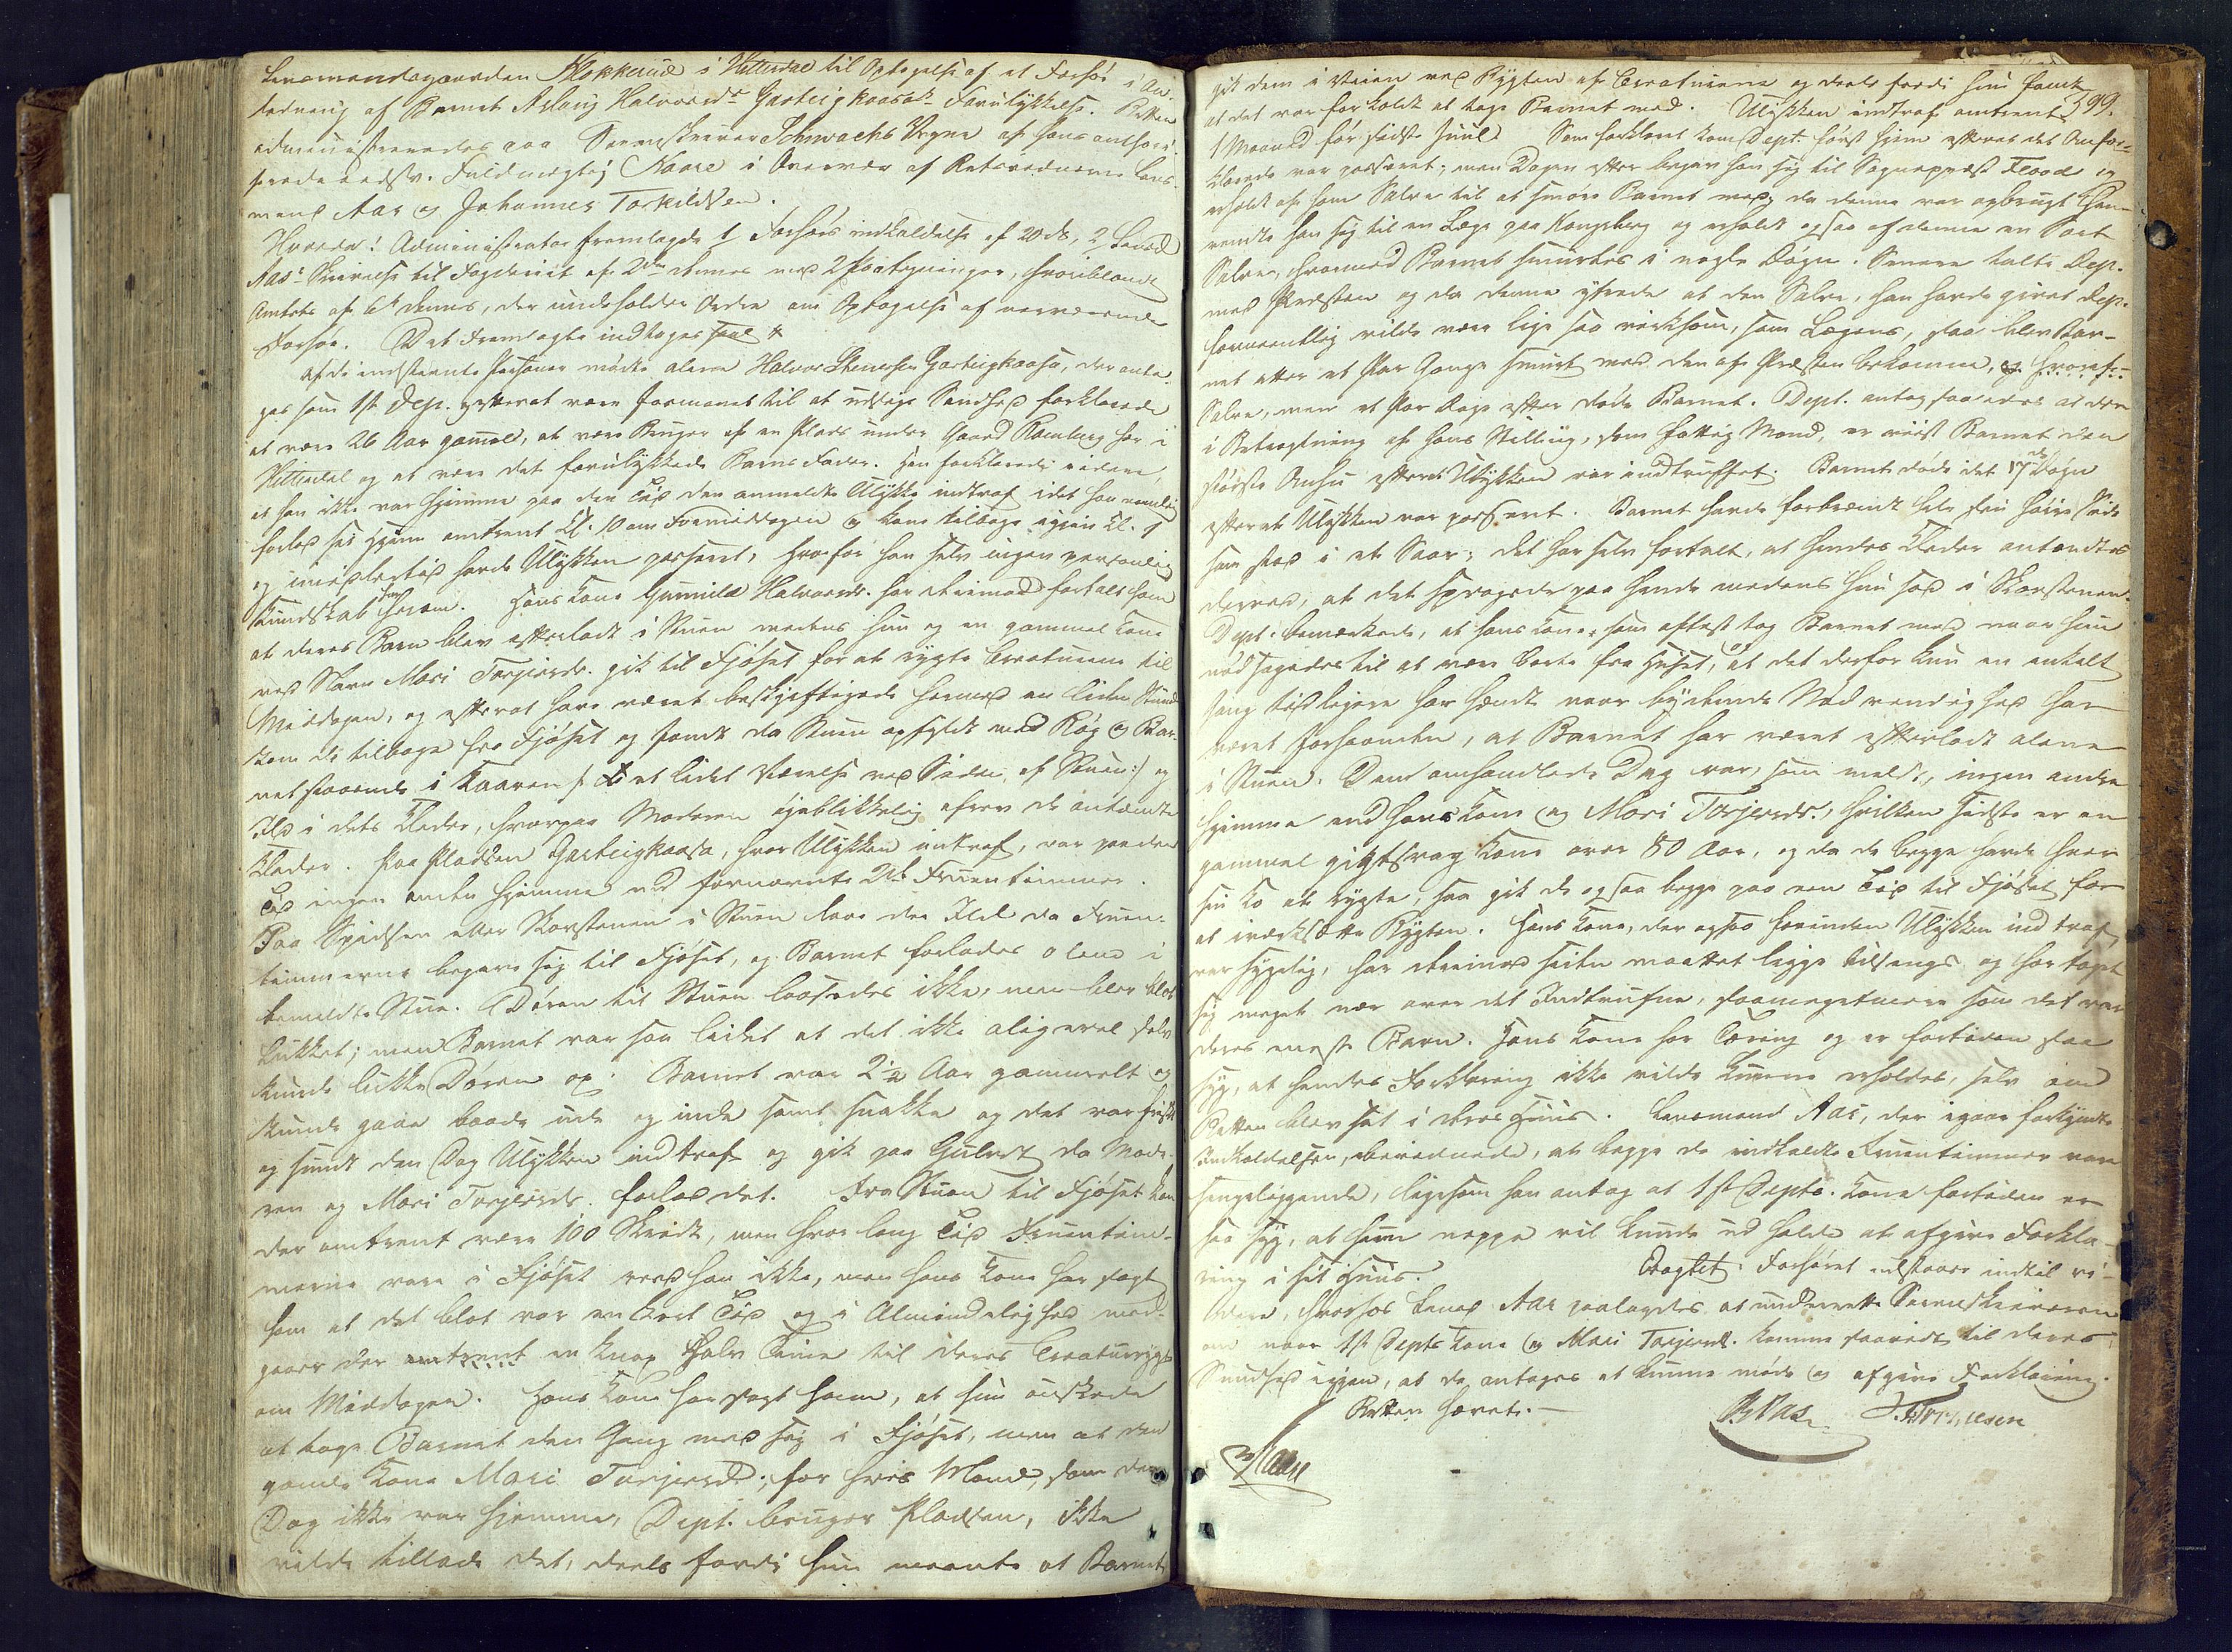 Lensmandsgaarden Klokkerud i Hitterdal til Optagelse af et Forhör i An-
ledning af Barnet Aslaug Halvorsdr Gasteigkaasas Forulykkelse. Retten
administreredes paa Sorenskriver Schwachs Vegne af hans authori-
serede edsv. Fuldmægtig Kaare i Overvær af Retsvidnerne Lens-
mand Aas og Johannes Torkildsen.
Hvorda! Administrator fremlagde 1 Forhörs indkaldelse af 20 ds, 2 Lensmd
Aas's Skrivelse til Fogderiet af 2den dennes med 2 Paategninger, hvoriblandt
Amtets af 6te dennes, der indeholder Ordre om Optagelse af nærværende
Forhör. Det Fremlagte indtages saal.
Af de indstevnte Personer mödte alene Halvor Stenersen Gasteigkaasa, der anta-
ges som 1ste Dep. efterat være formanet til at udsige Sandhed forklarede
at være 26 Aar gammel, at være Bruger af en Plads under Gaard Ramberg her i
Hitterdal og at være det forulykkede Barns Fader. Han forklarede videre
at han ikke var hjemme paa den Tid den anmeldte Ulykke indtraf idet han nemlig
forlod sit Hjem omtrent Kl. 10 om Formiddagen og kom tilbage igjen Kl. 1
og imidlertid havde Ulykken passeret, hvorfor han selv ingen personlig
Kundskab har herom. Hans Kone Gunnild Halvorsdr. har derimod fortalt ham
at deres Barn blev efterladt i Stuen medens hun og en gammel Kone
ved Navn Mari Torjersdr. gik til Fjöset for at rygte Creaturene til
Middagen, og efterat have været beskjeftigede hermed en liden Stund
kom de tilbage fra Fjöset og fandt da Stuen opfyldt med Rög og Bar-
net staaende i Kaaven /: et lidet Værelse ved Siden af Stuen :/ og
Ild i dets Klæder, hvorpaa Moderen öjeblikkelig afrev de antændte
Klæder. Paa Pladsen Gasteigkaasa, hvor Ulykken indtraf, var paa den
Tid ingen andre hjemme end fornævnte 2de Fruentimmer.
Paa Spidsen eller Skorstenen i Stuen laae der Ild da Fruen-
timmerne begave sig til Fjöset, og Barnet forlodes alene i
bemeldte Stue. Dören til Stuen laasedes ikke, men blev blot
lukket; men Barnet var saa lidet at det ikke alligevel selv
kunde lukke Dören op. Barnet var 2½ Aar gammelt og
kunde gaae baade ude og inde samt snakke og det var friskt
og sundt den Dag Ulykken indtraf og gik paa Gulvet da Mode-
ren og Mari Torjersdr. forlod det. Fra Stuen til Fjöset kan
der omtrent være 100 Skridt, men hvor lang Tid Fruentim-
merne vare i Fjöset veed han ikke, men hans Kone har sagt
ham at det blot var en kort Tid og i Almindelighed med-
gaaer der omtrent en knap halv Time til deres Creaturrygt
om Middagen. Hans Kone har sagt ham, at hun önskede
at tage Barnet den Gang med sig i Fjöset, men at den
gamle Kone Mari Torjersdr., for hvis Mand, som den
Dag ikke var hjemme, Dept. bruger Pladsen, ikke
vilde tillade det, deels fordi hun meente at Barnet
599.
gik dem i Veien ved Rygten af Creaturene og deels fordi hun fandt
at det var for koldt at tage Barnet med. Ulykken indtraf omtrent
1 Maaned för sidste Juul. Som forklaret kom Dept. först hjem efterat det Omfor-
klarede var passeret; men Dagen efter begav han sig til Sognepræst Flood og
erholdt af ham Salve til at smöre Barnet med; da denne var opbrugt hen-
vendte han sig til en Læge paa Kongsberg og erholdt ogsaa af denne en Sort
Salve, hvormed Barnet smurtes i nogle Dögn. Senere talte Dep.
med Præsten og da denne yttrede at den Salve, han havde givet Dep.
formeentlig vilde være lige saa virksom, som Lægens, saa blev Bar-
net atter et Par Gange smurt med den af Præsten bekomne,
Salve, men et Par Dage efter döde Barnet. Dept. antog saaledes at der
i Betragtning af hans Stilling, som fattig Mand, er viist Barnet den
störste Omhu efterat Ulykken var indtruffet. Barnet döde i det 17de Dögn
efterat Ulykken var passeret. Barnet havde forbrændt hele sin höire Side
som stod i et Saar; det har selv fortalt, at hendes Klæder antændtes
derved, at det spragede paa hende medens hun sad i Skorstenen.
Dept. bemærkede, at hans Kone som oftest tog Barnet med naar hun
nödsagedes til at være borte fra Huset, og at det derfor kun en enkelt
Gang tidligere har hændt naar bydende Nödvendighed har
været forhaanden, at Barnet har været efterladt alene
i Stuen. Den omhandlede Dag var, som meldt, ingen andre
hjemme end hans Kone og Mari Torjersdr., hvilken sidste er en
gammel gigtsvag Kone over 80 Aar, og da de begge havde hver
sin Ko at rygte, saa gik de ogsaa begge paa een Tid til Fjöset for
at iværksætte Rygten. Hans Kone, der ogsaa forinden Ulykken indtraf
var sygelig, har derimod siden maattet ligge tilsengs og har taget
sig meget nær over det Indtrufne, saameget mere som det var
deres eneste Barn. Hans Kone har Tæring og er fortiden saa
syg, at hendes Forklaring ikke vilde kunne erholdes, selv om
Retten blev sat i deres Huus. Lensmand Aas, der igaar forkyndte
Indkaldelsen, bevidnede, at begge de indkaldte Fruentimmer vare
sengeliggende, ligesom han antog at 1ste Depts. Kone fortiden er
saa syg, at hun neppe vil kunde udholde at afgive Forkla-
ring i sit Huus. Eragtet: Forhöret udstaaer indtil vi-
dere, hvorhos Lensmd Aas paalagdes at underrette Sorenskriveren
om naar 1ste Depts Kone og Mari Torjersdr. komme saavidt til deres
Sundhed igjen, at de antages at kunne möde og afgive Forklaring.
Retten hævet. —
Aas J. Torkildsen
Kaare